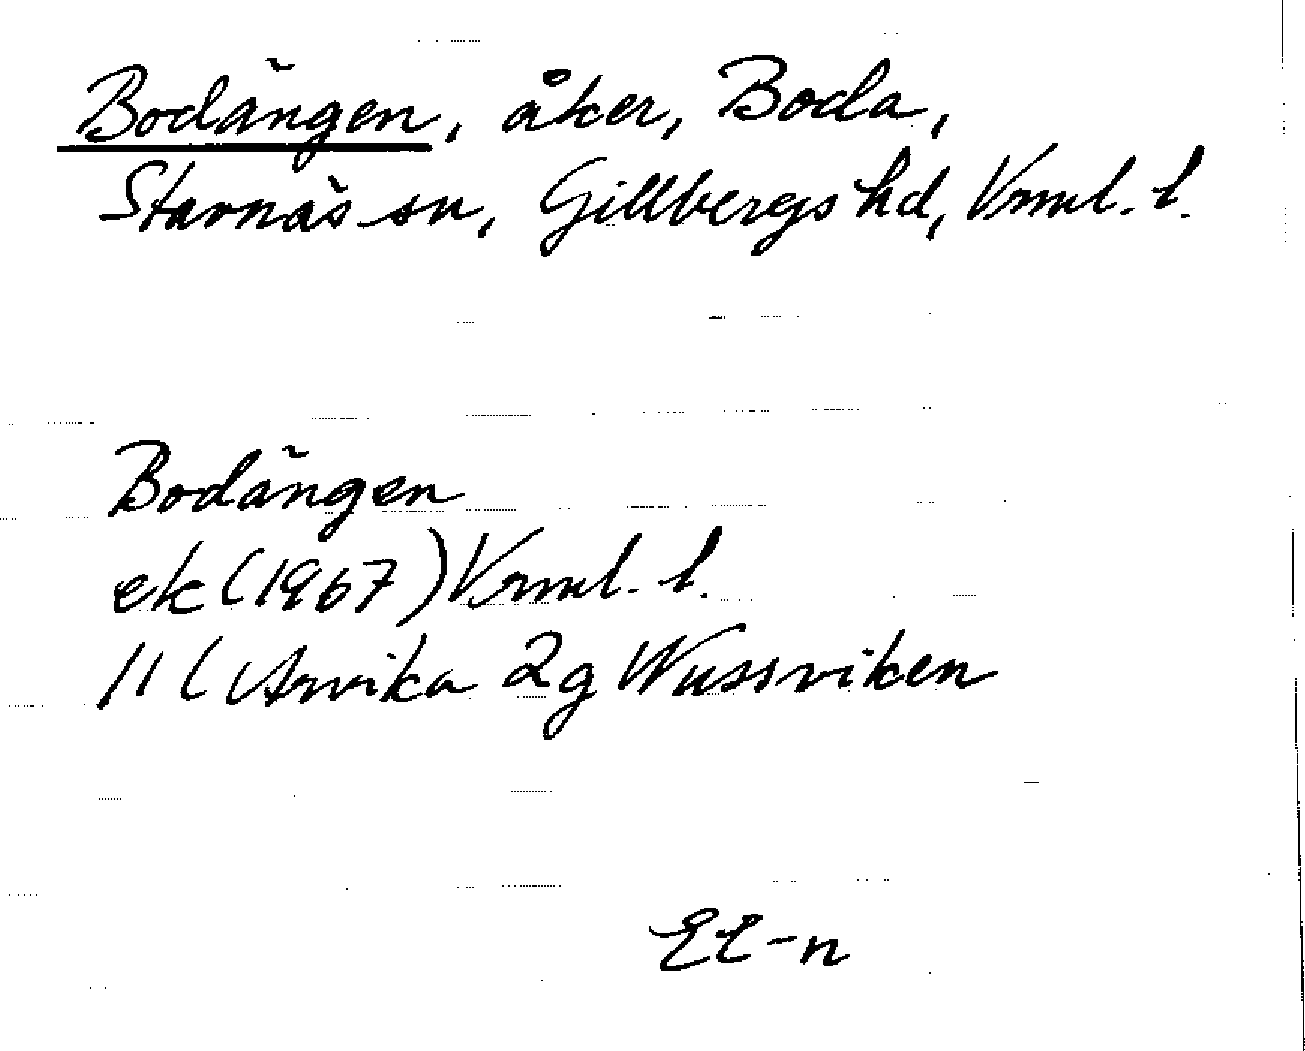 Bodängen, åker, Boda,
Stavnäs sn, Gillbergs hd, Vrml. l.
Bodängen
ek (1967) Vrml. l.
11 ( Arvika 2g Nussviken